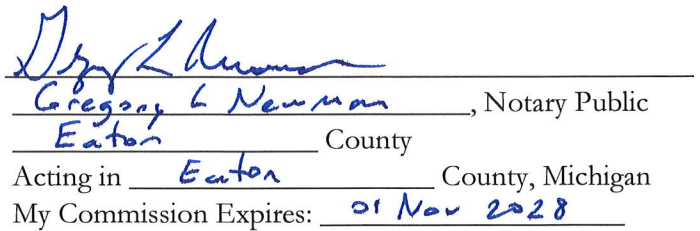 Gregory L Newman
Gregory L Newman, Notary Public
Eaton County
Acting in Eaton County, Michigan
My Commission Expires: 01 Nov 2028